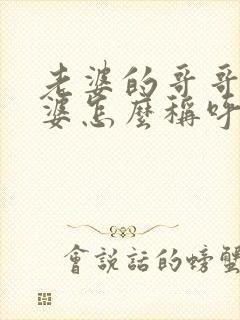 老婆的哥哥
婆怎麼稱呼
會說話的螃蟹